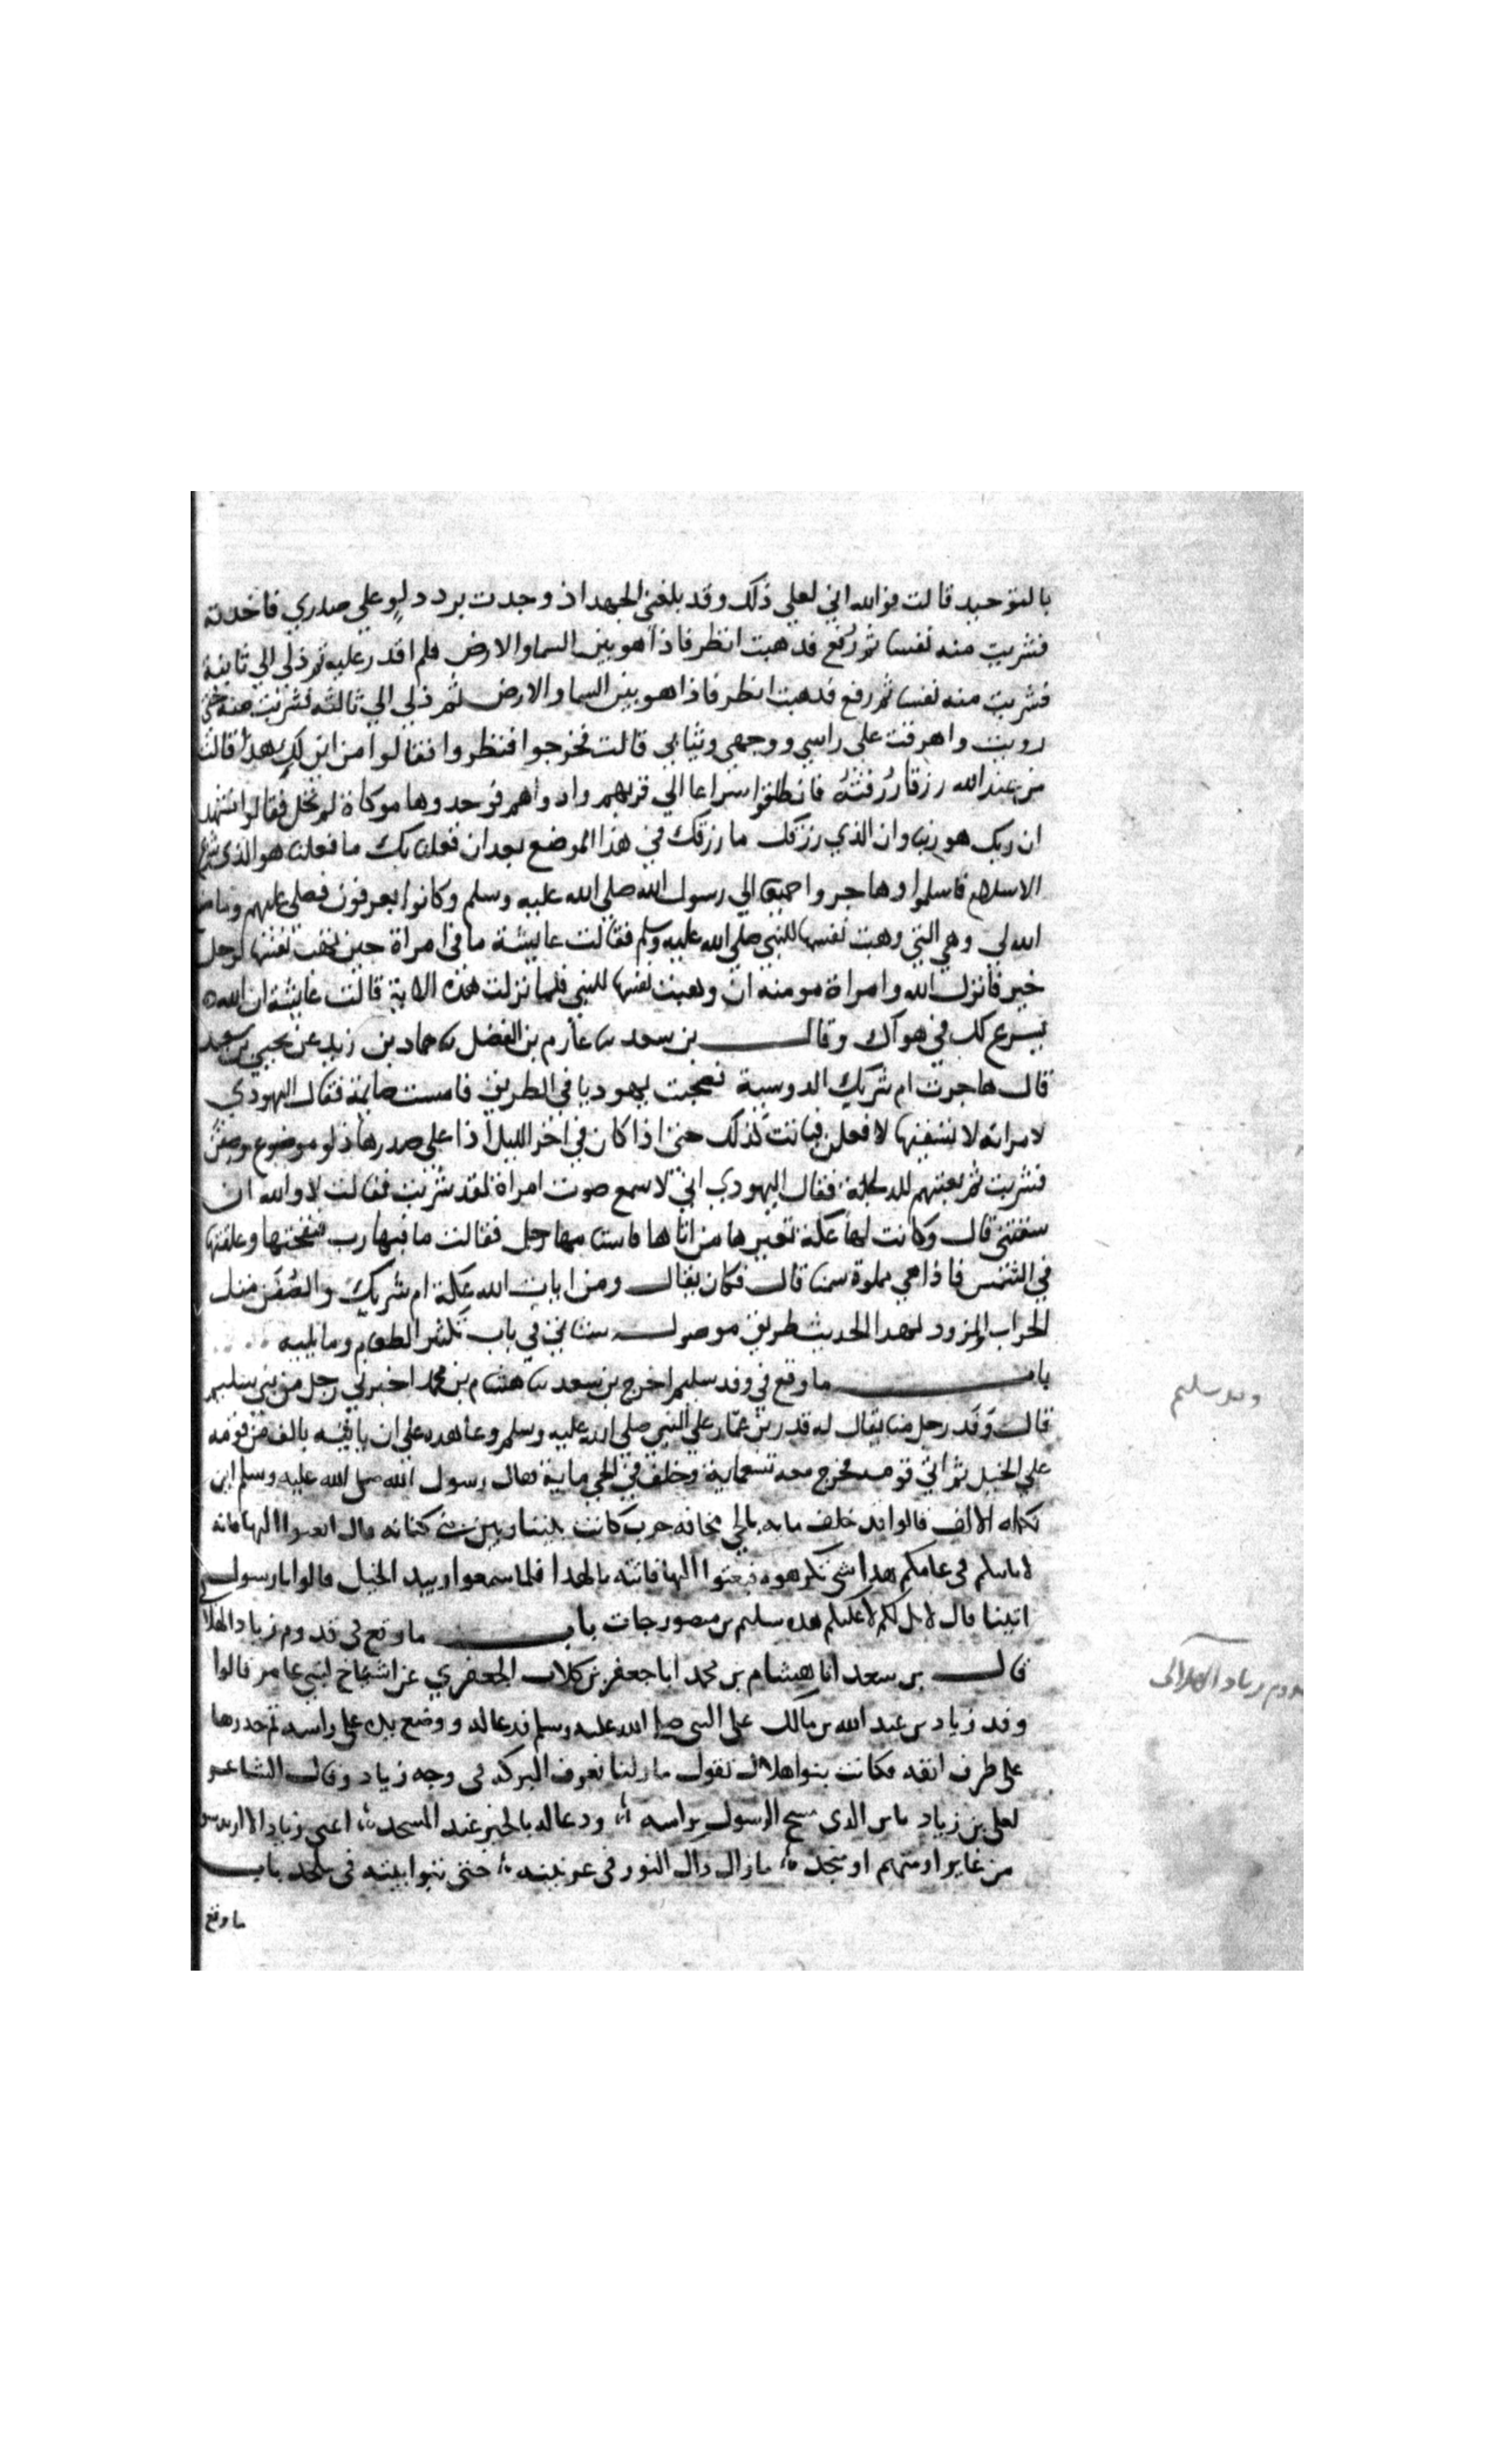 بالتوحيد قالت فوالله اني لعلي ذلك وقد بلغني الجهد اذ وجدت برد دلو علي صدري فاخدته
فشربت منه نفسا ثم رُفع فدهبت انظر فاذا هو بين السما والارض فلم اقدر عليه ثم دلي الي ثانية
فشربت منه نفسا ثم رفع فدهبت انظر فاذا هو بين السما والارض ثم دلي الي ثالثه فشربت منه حتي
رويت واهرقت علي راسي ووجهي وثيابي قالت فخرجوا فنظروا فقالوا من اين لكِ هدا قالت
من عند الله رزقا رُزقنيهُ فانطلقوا سراعا الي قربهم واداواهم فوجدوها موكاة لم تحل فقالوا نشهد
ان ربك هو ربنا وان الذي رزقك ما رزقك في هذا الموضع بعد ان فعلنا بك ما فعلنا هو الذي شرع
الاسلام فاسلموا وهاجروا جميعا الي رسول الله صلي الله عليه وسلم وكانوا يعرفون فضلي عليهم وما صنع
الله لي وهي التي وهبت نفسها للنبي صلي الله عليه وسلم فقالت عايشة ما في امراة حين تهب نفسها لرجل
خير فانزل الله وامراة مومنه ان وهبت نفسها للنبي فلما نزلت هذه الاية قالت عايشة ان الله
يسرع لك في هواك وقال بن سعد ثنا عارم بن الفضل ثنا حماد بن زيد عن يحيي بن سعيد
قال هاجرت ام شريك الدوسية فصحبت يهوديا في الطريق فامست صايمة فقال اليهودي
لامراته لا تسقينها لافعلن فباتت كذلك حتي اذا كان في اخر الليل اذا علي صدرها دلو موضوع وصفن
فشربت ثم بعثتهم للدلجة فقال اليهودي اني لاسمع صوت امراة لقد شربت فقالت لا والله ان
سقتني قال وكانت لها عكة تعيرها من اتاها فاستامها رجل فقالت ما فيها رب فنفختها وعلقتها
في الشمس فاذا هي مملوة سمنا قال فكان يقال ومن ايات الله عكة ام شريك والصُفن مثل
الجراب المزود لهدا الحديث طريق موصول ستاتي في باب تكثير الطعام وما يليه
باب ما وقع في وفد سليم اخرج بن سعد ثنا هشام بن محمد اخبرني رجل من بني سليم
قال وَفَد رجل منا يقال له قدر بن عمّار علي النبي صلي الله عليه وسلم وعاهده علي ان ياتيه بالف من قومه
علي الخيل ثم اتي قومه فخرج معه تسعماية وخلف في الحي ماية فقال رسول الله صلى الله عليه وسلم اين
تكملة الالف قالوا قد خلف مايه بالحي مخافه حرب كانت بيننا وبين بني كنانه قال ابعثوا اليها فانه
لا ياتيكم في عامكم هدا شي تكرهوه فبعثوا اليها فاتته بالهدا فلما سمعوا وييد الخيل قالوا يا رسول الله
اتينا قال لا بل لكم لا عليكم هده سليم بن منصور جات باب ما وقع في قدوم زياد الهلالي
قال بن سعد انا هشام بن محمد ابا جعفر بن كلاب الجعفري عن اشياخ لبني عامر قالوا
وفد زياد بن عبد الله بن مالك على النبي صلى الله عليه وسلم فدعا له ووضع يده على راسه ثم حدرها
على طرف انفه فكانت بنوا هلال تقول ما زلنا نعرف البركه في وجه زياد وقال الشاعر
لعلي بن زياد يا بن الدى مسح الرسول براسه ودعا له بالخير عند المسجد اعني زيادا لا اريد سو
من غاير او متهم او منجد ما زال داك النور في عرنينه حتي تبوا بيته في ملحد باب
ما وقع
وفد سليم
قدوم زياد الهلالى